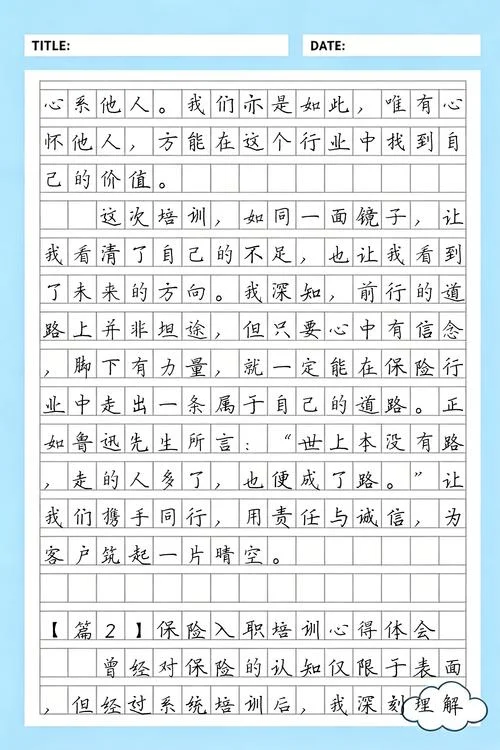 TITLE:
DATE:
心系他人。我们亦是如此，唯有心
怀他人，方能在这个行业中找到自
己的价值。
这次培训，如同一面镜子，让
我看清了自己的不足，也让我看到
了未来的方向。我深知，前行的道
路上并非坦途，但只要心中有信念
，脚下有力量，就一定能在保险行
业中走出一条属于自己的道路。正
如鲁迅先生所言：“世上本没有路
，走的人多了，也便成了路。”让
我们携手同行，用责任与诚信，为
客户筑起一片晴空。
【篇2】保险入职培训心得体会
曾经对保险的认知仅限于表面
，但经过系统培训后，我深刻理解